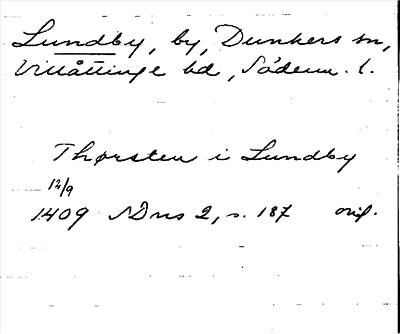 Lundby, by, Dunkers sn,
Villåttinge hd, Söderm. l.
Thørsten i Lundby
12/9
1409 SDns 2, s. 187 orig.